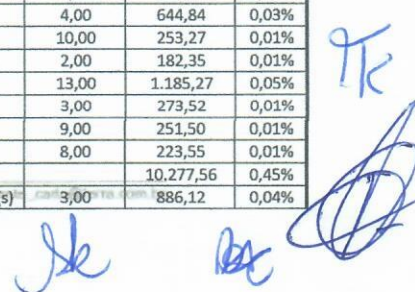 4,00 644,84 0,03%
10,00 253,27 0,01%
2,00 182,35 0,01%
13,00 1.185,27 0,05%
3,00 273,52 0,01%
9,00 251,50 0,01%
8,00 223,55 0,01%
10.277,56 0,45%
s) 3,00 886,12 0,04%
TK